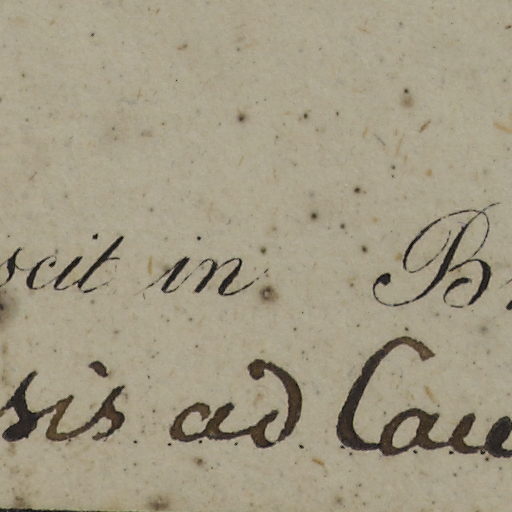 scit in B
sis ad Cau